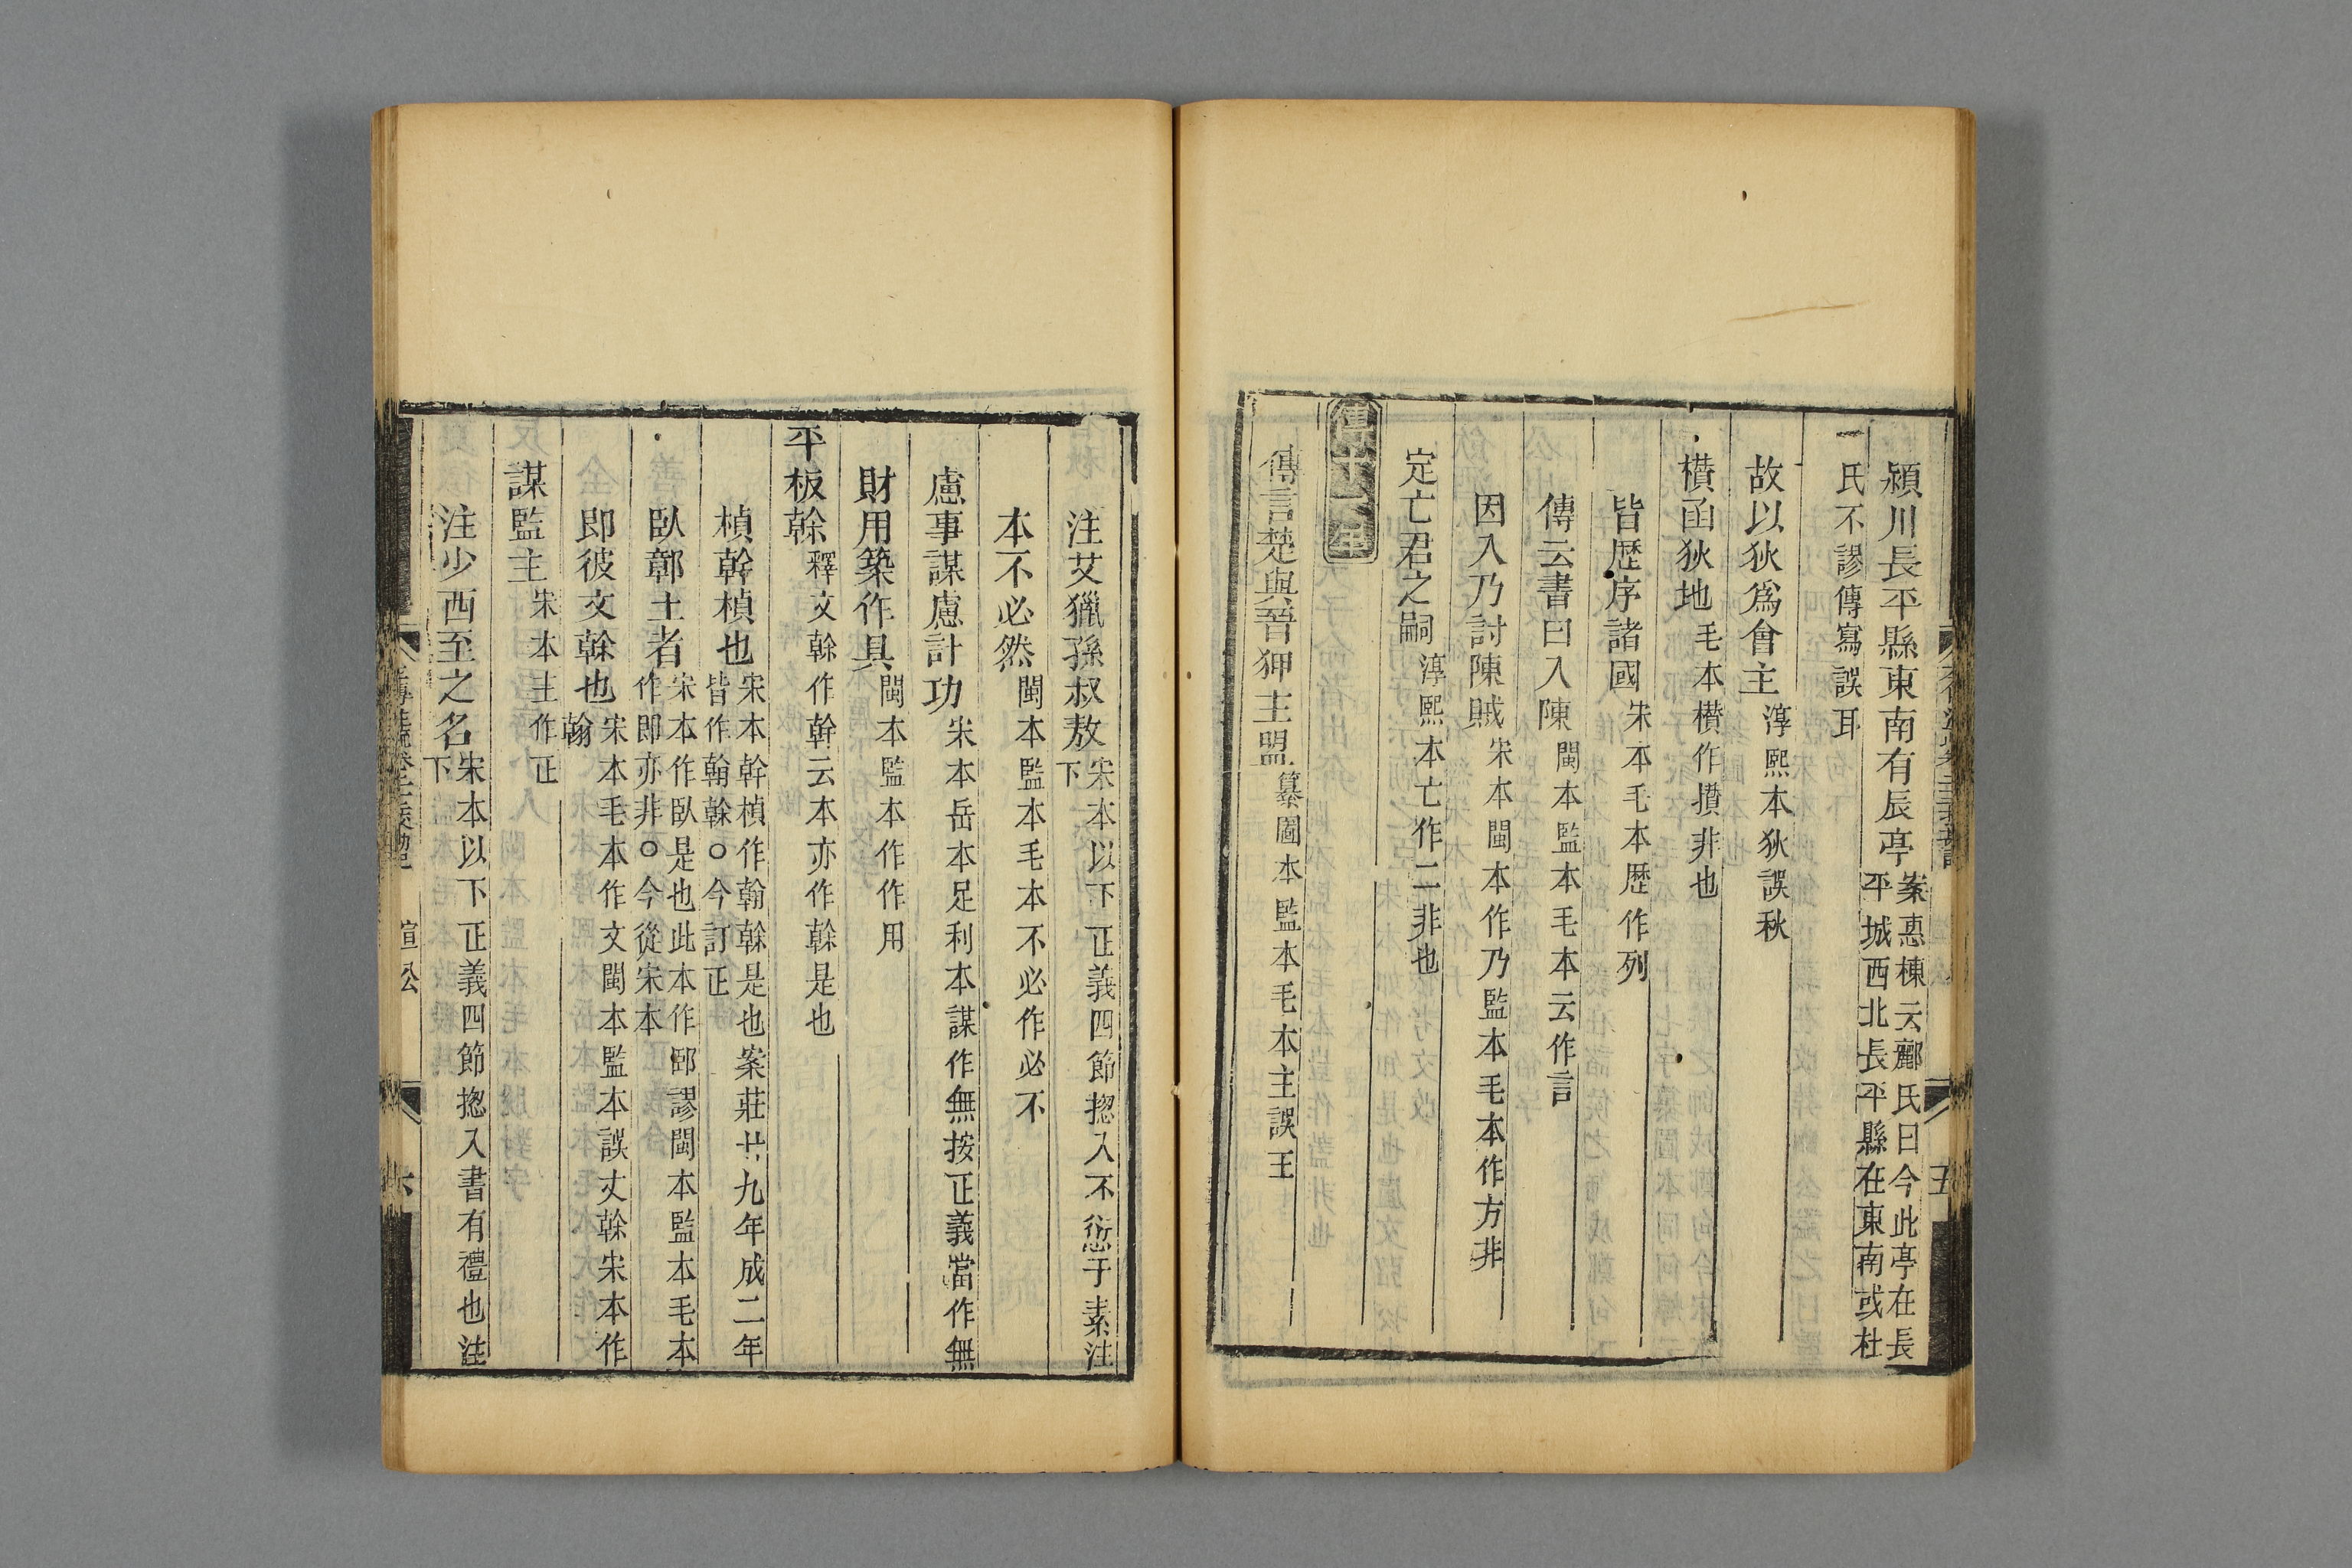 潁川長平縣東南有辰亭案惠棟云酈氏曰今此亭在長平城西北長平縣在東南或杜
氏不謬傳寫誤耳
故以狄爲會主淳熙本狄誤秋
櫕函狄地毛本櫕作攢非也
皆歷序諸國宋本毛本歷作列
傳云書曰入陳閩本監本毛本云作言
因入乃討陳賊宋本閩本作乃監本毛本作方非
定亡君之嗣淳熙本亡作二非也
傳十一年
傳言楚與晉狎主盟纂圖本監本毛本主誤王
五
注艾獵孫叔敖宋本以下正義四節揔入不愆于素注下
本不必然閩本監本毛本不必作必不
慮事謀慮計功宋本岳本足利本謀作無按正義當作無
財用築作具閩本監本作作用
平板榦釋文榦作幹云本亦作榦是也
楨幹楨也宋本幹楨作翰榦是也案莊廿九年成二年皆作翰榦○今訂正
臥鄣土者宋本作臥是也此本作卽謬閩本監本毛本作即亦非○今從宋本
即彼文榦也宋本毛本作文閩本監本誤丈榦宋本作翰
謀監主宋本主作正
注少西至之名宋本以下正義四節揔入書有禮也注下
六